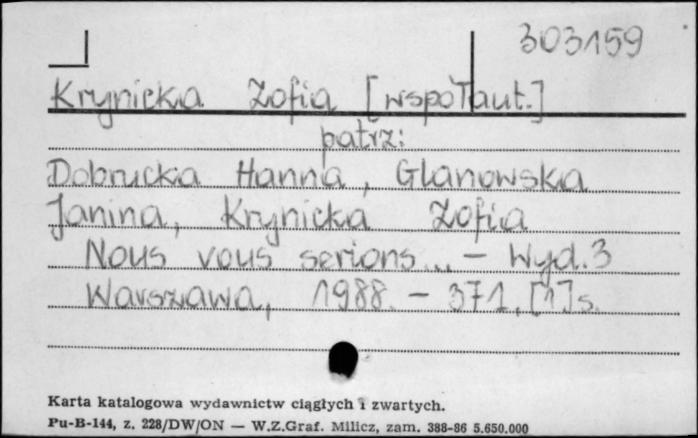 303159
Krynicka Zofia [współaut.]
patrz:
Dobrucka Hanna, Glanowska
Janina, Krynicka Zofia
Nous vous serions... - Wyd. 3
Warszawa, 1988. - 371, [1] s.
Karta katalogowa wydawnictw ciągłych i zwartych.
Pu-B-144, z. 228/DW/ON — W.Z.Graf. Milicz, zam. 388-86 5.650.000